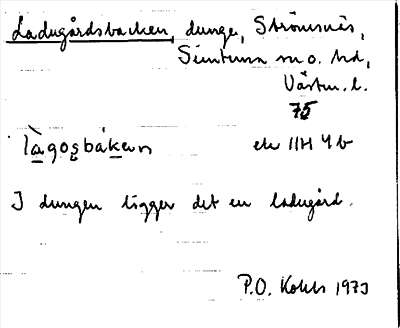 Ladugårdsbacken, dunge, Strömsnäs,
Simtuna sn o. hd,
Västm. l.
75
làgosbákɐn
ek 11H 4b
I dungen ligger det en ladugård.
P.O. Kohls 1973